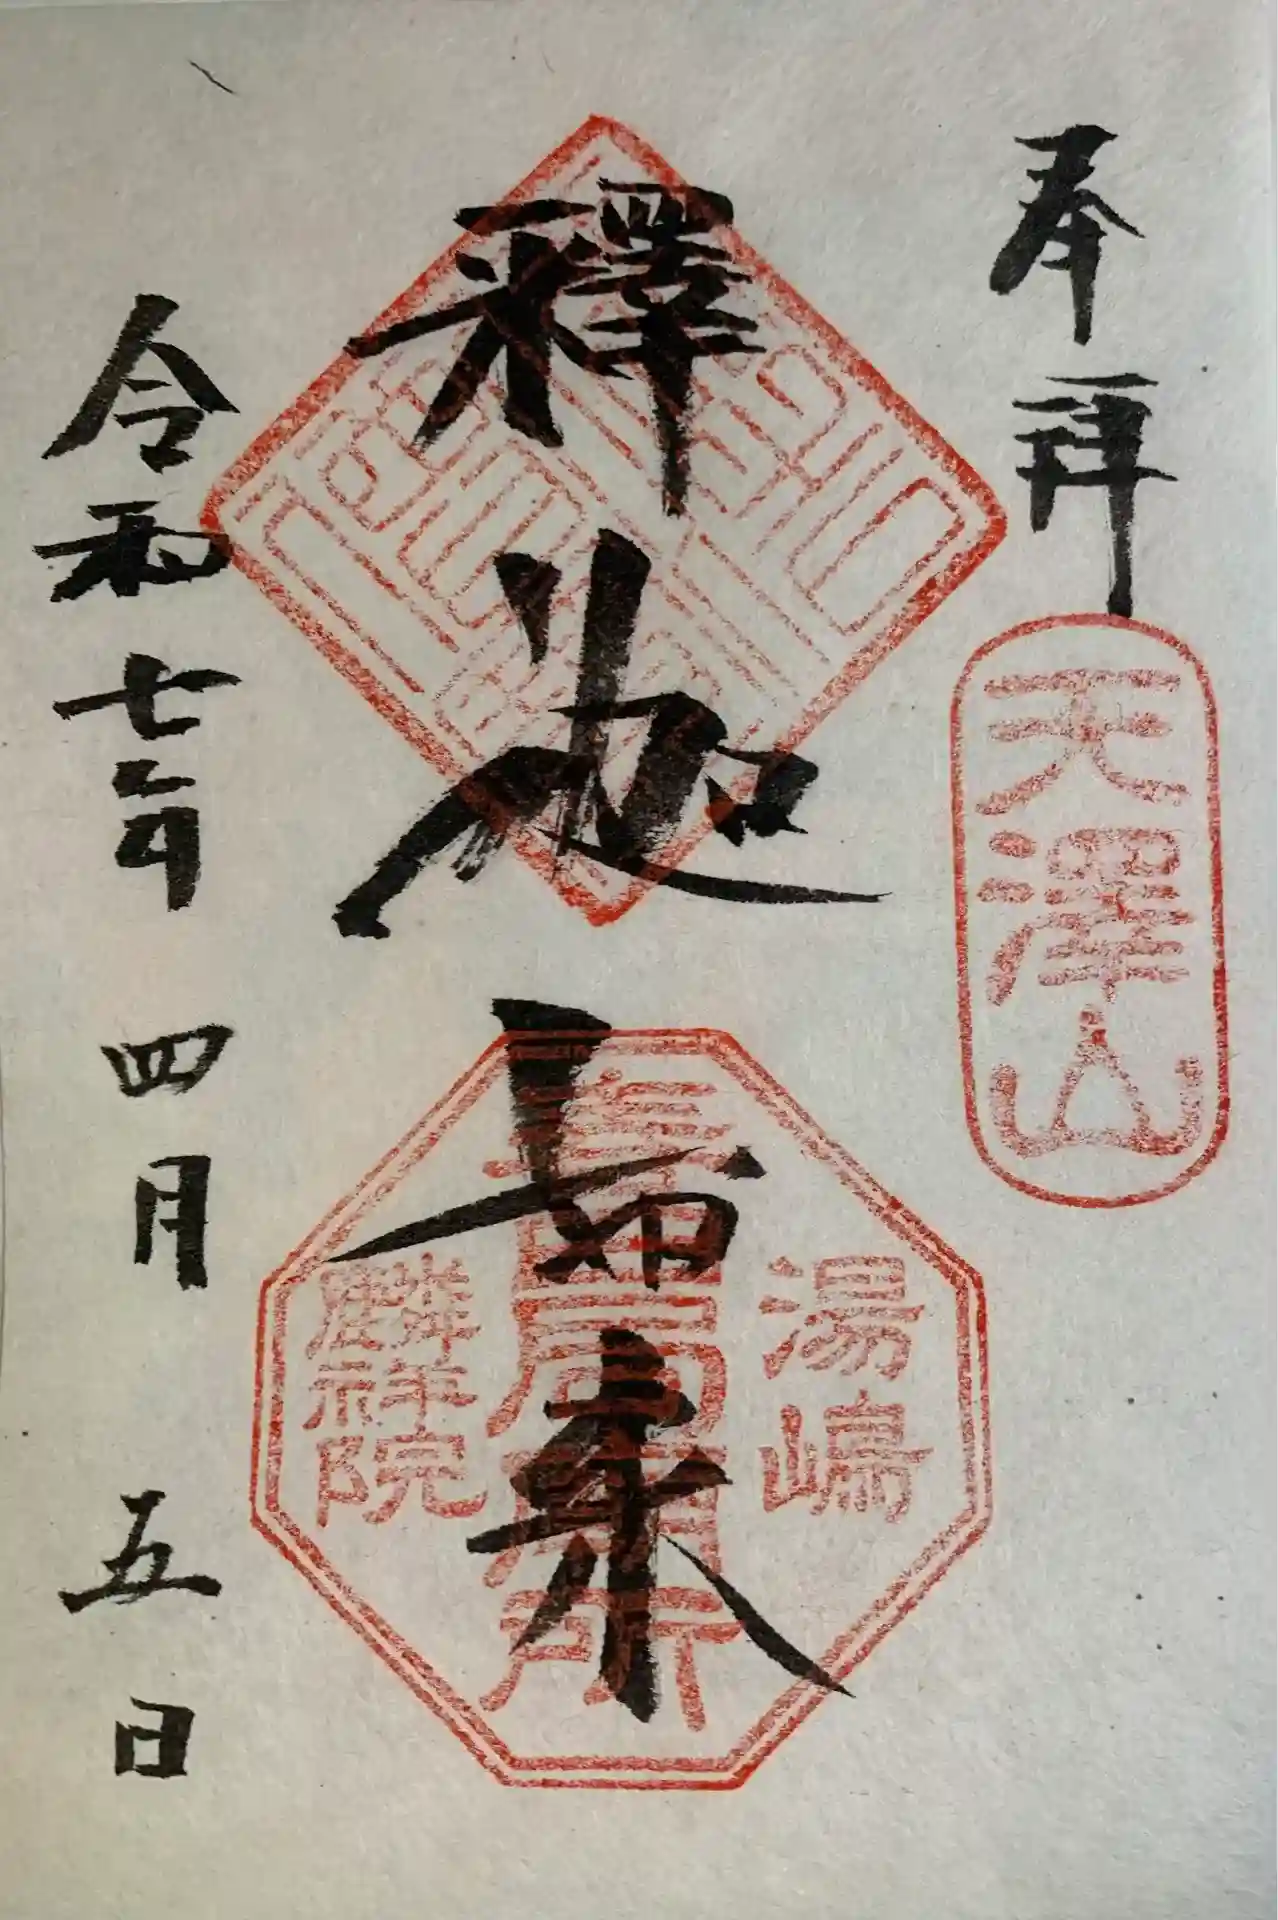 奉拝
天澤山
釋迦如来
湯嶋
春日局廟所
麟祥院
令和七年四月五日